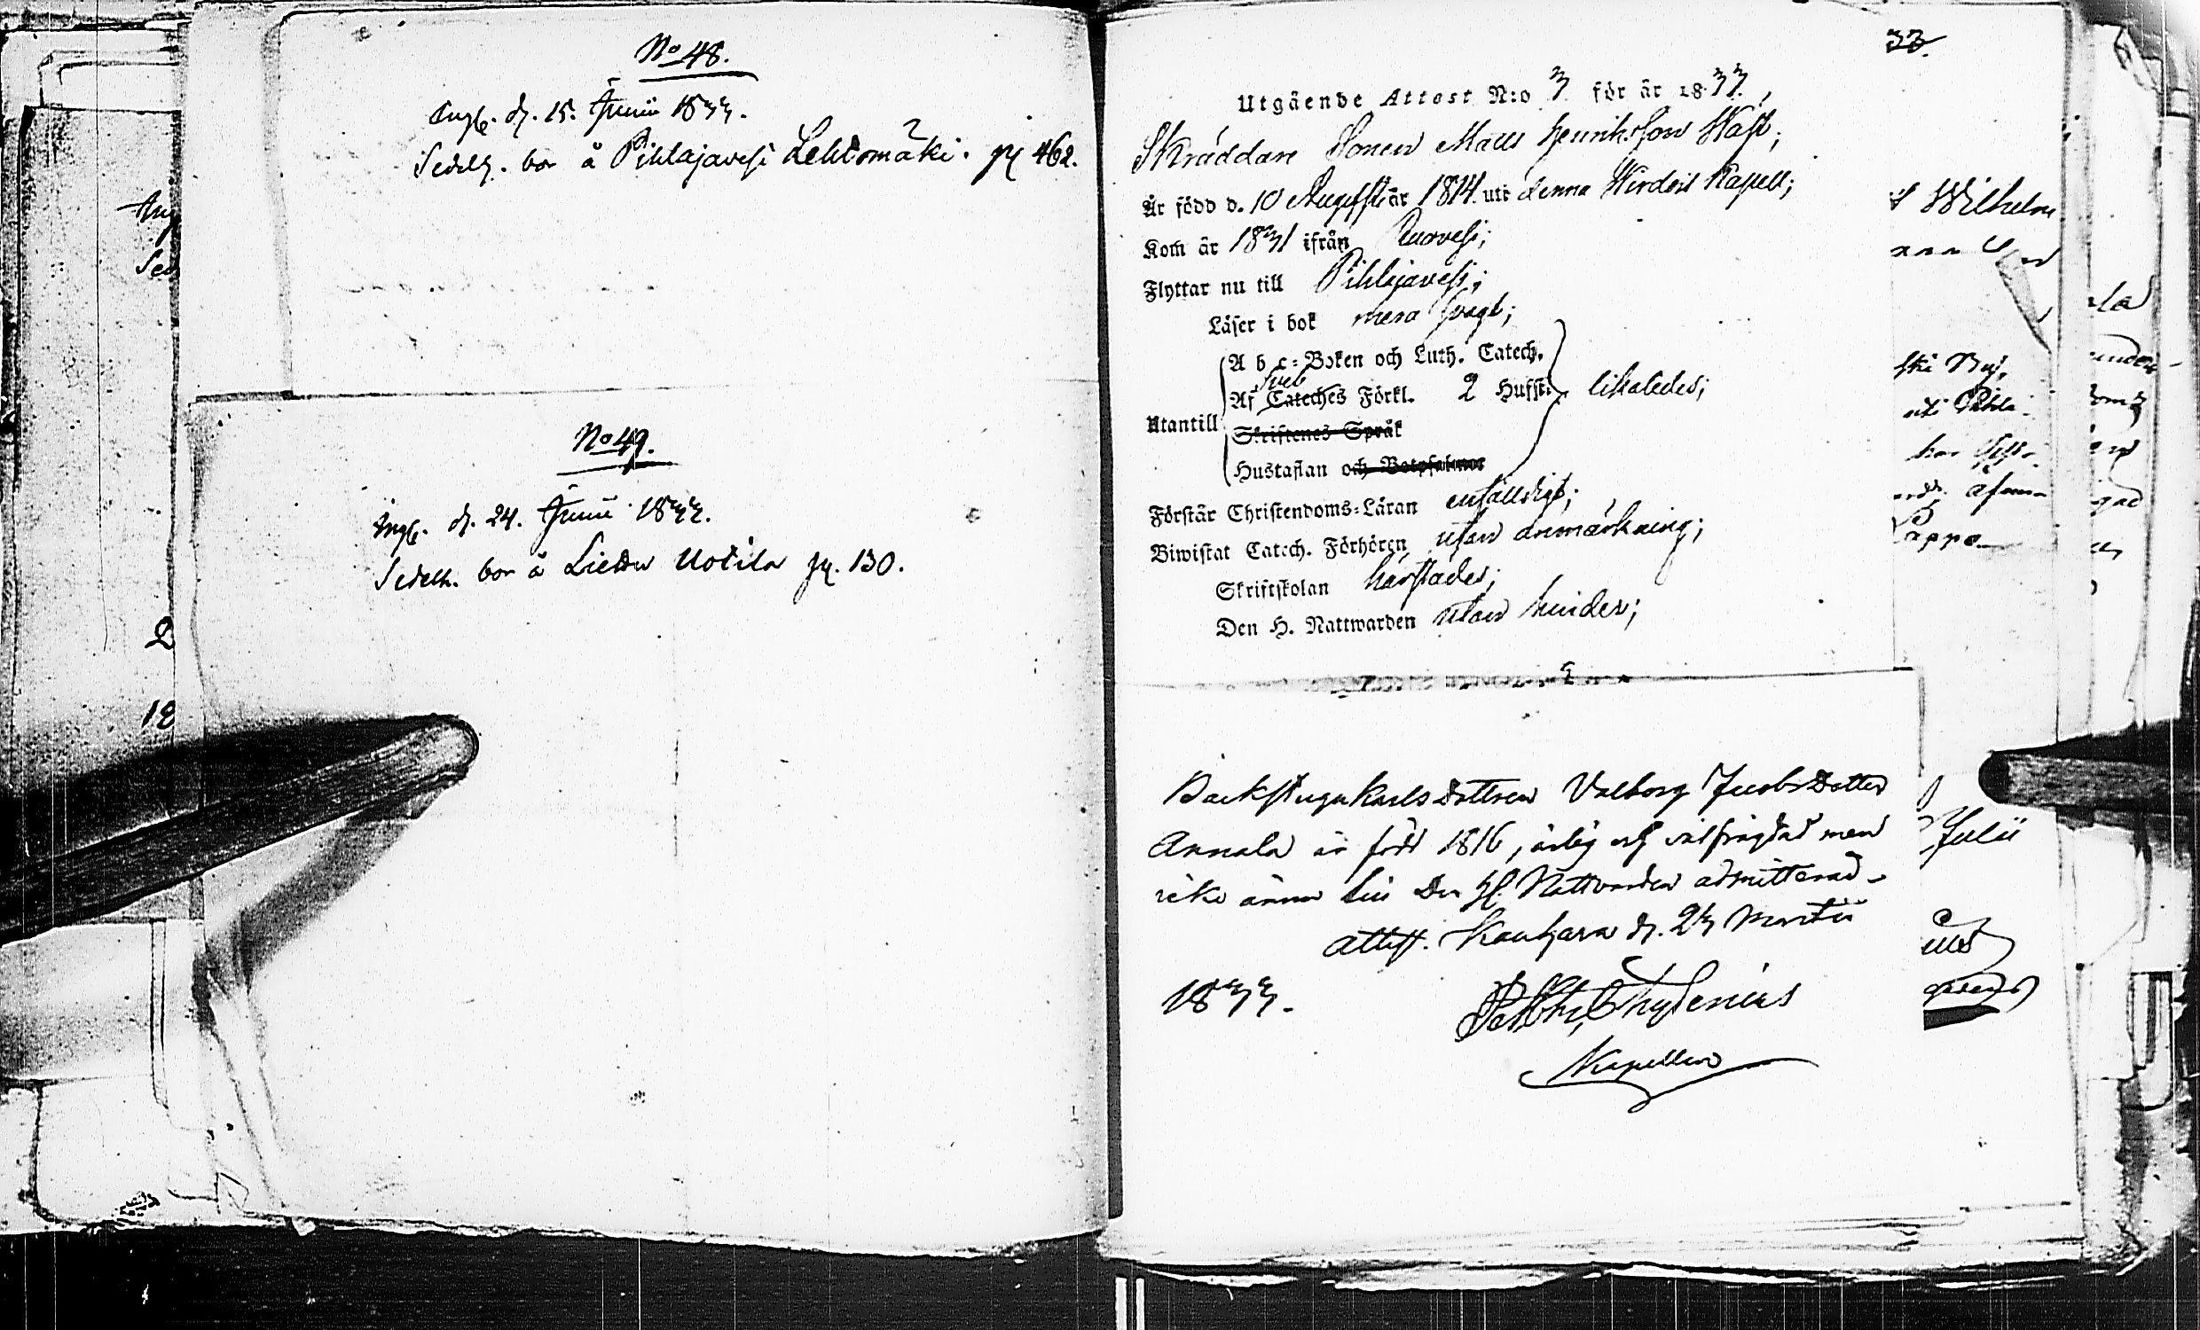 No 48.
Ingb. d. 15. Junii 1833.
Sedelh. bor å Pihlajavesi Lehtomäki. pg 462.
No 49.
Ingb. d. 24. Junii 1833.
Sedelh. bor å Uotila pg. 130.
33.
Utgående Attest N:o 3 för år 1833,
Skräddare Sonen Matts Henriksson Hast;
Är född d. 10 Augusti år 1814. uti denna Virdois Kapell;
Kom år 1831 ifrån Ruovesi;
Flyttar nu till Pihlajavesi;
Läser i bok mera svagt;
A b c-Boken och Luth. Catech.
Sveb
Af Cateches Förkl. 2 Hufst: likaledes;
Utantill
Skriftenes Språk
Hustaflan och Botpsalmer
Förstår Christendoms-Läran enfalldigt;
Biwistat Catech. Förhören utan anmärkning;
Skriftskolan härstädes;
Den H. Nattwarden utan hinder;
Backstugukarlsdottren Valborg Jacobsdotter
Annala är född 1816, ärlig och välfrägdad men
icke ännu till Den H. Nattvarden admitterad.
attest. d. 23 Martii
1833.
Thylenius
Kapellan
Wilhelm
Julii